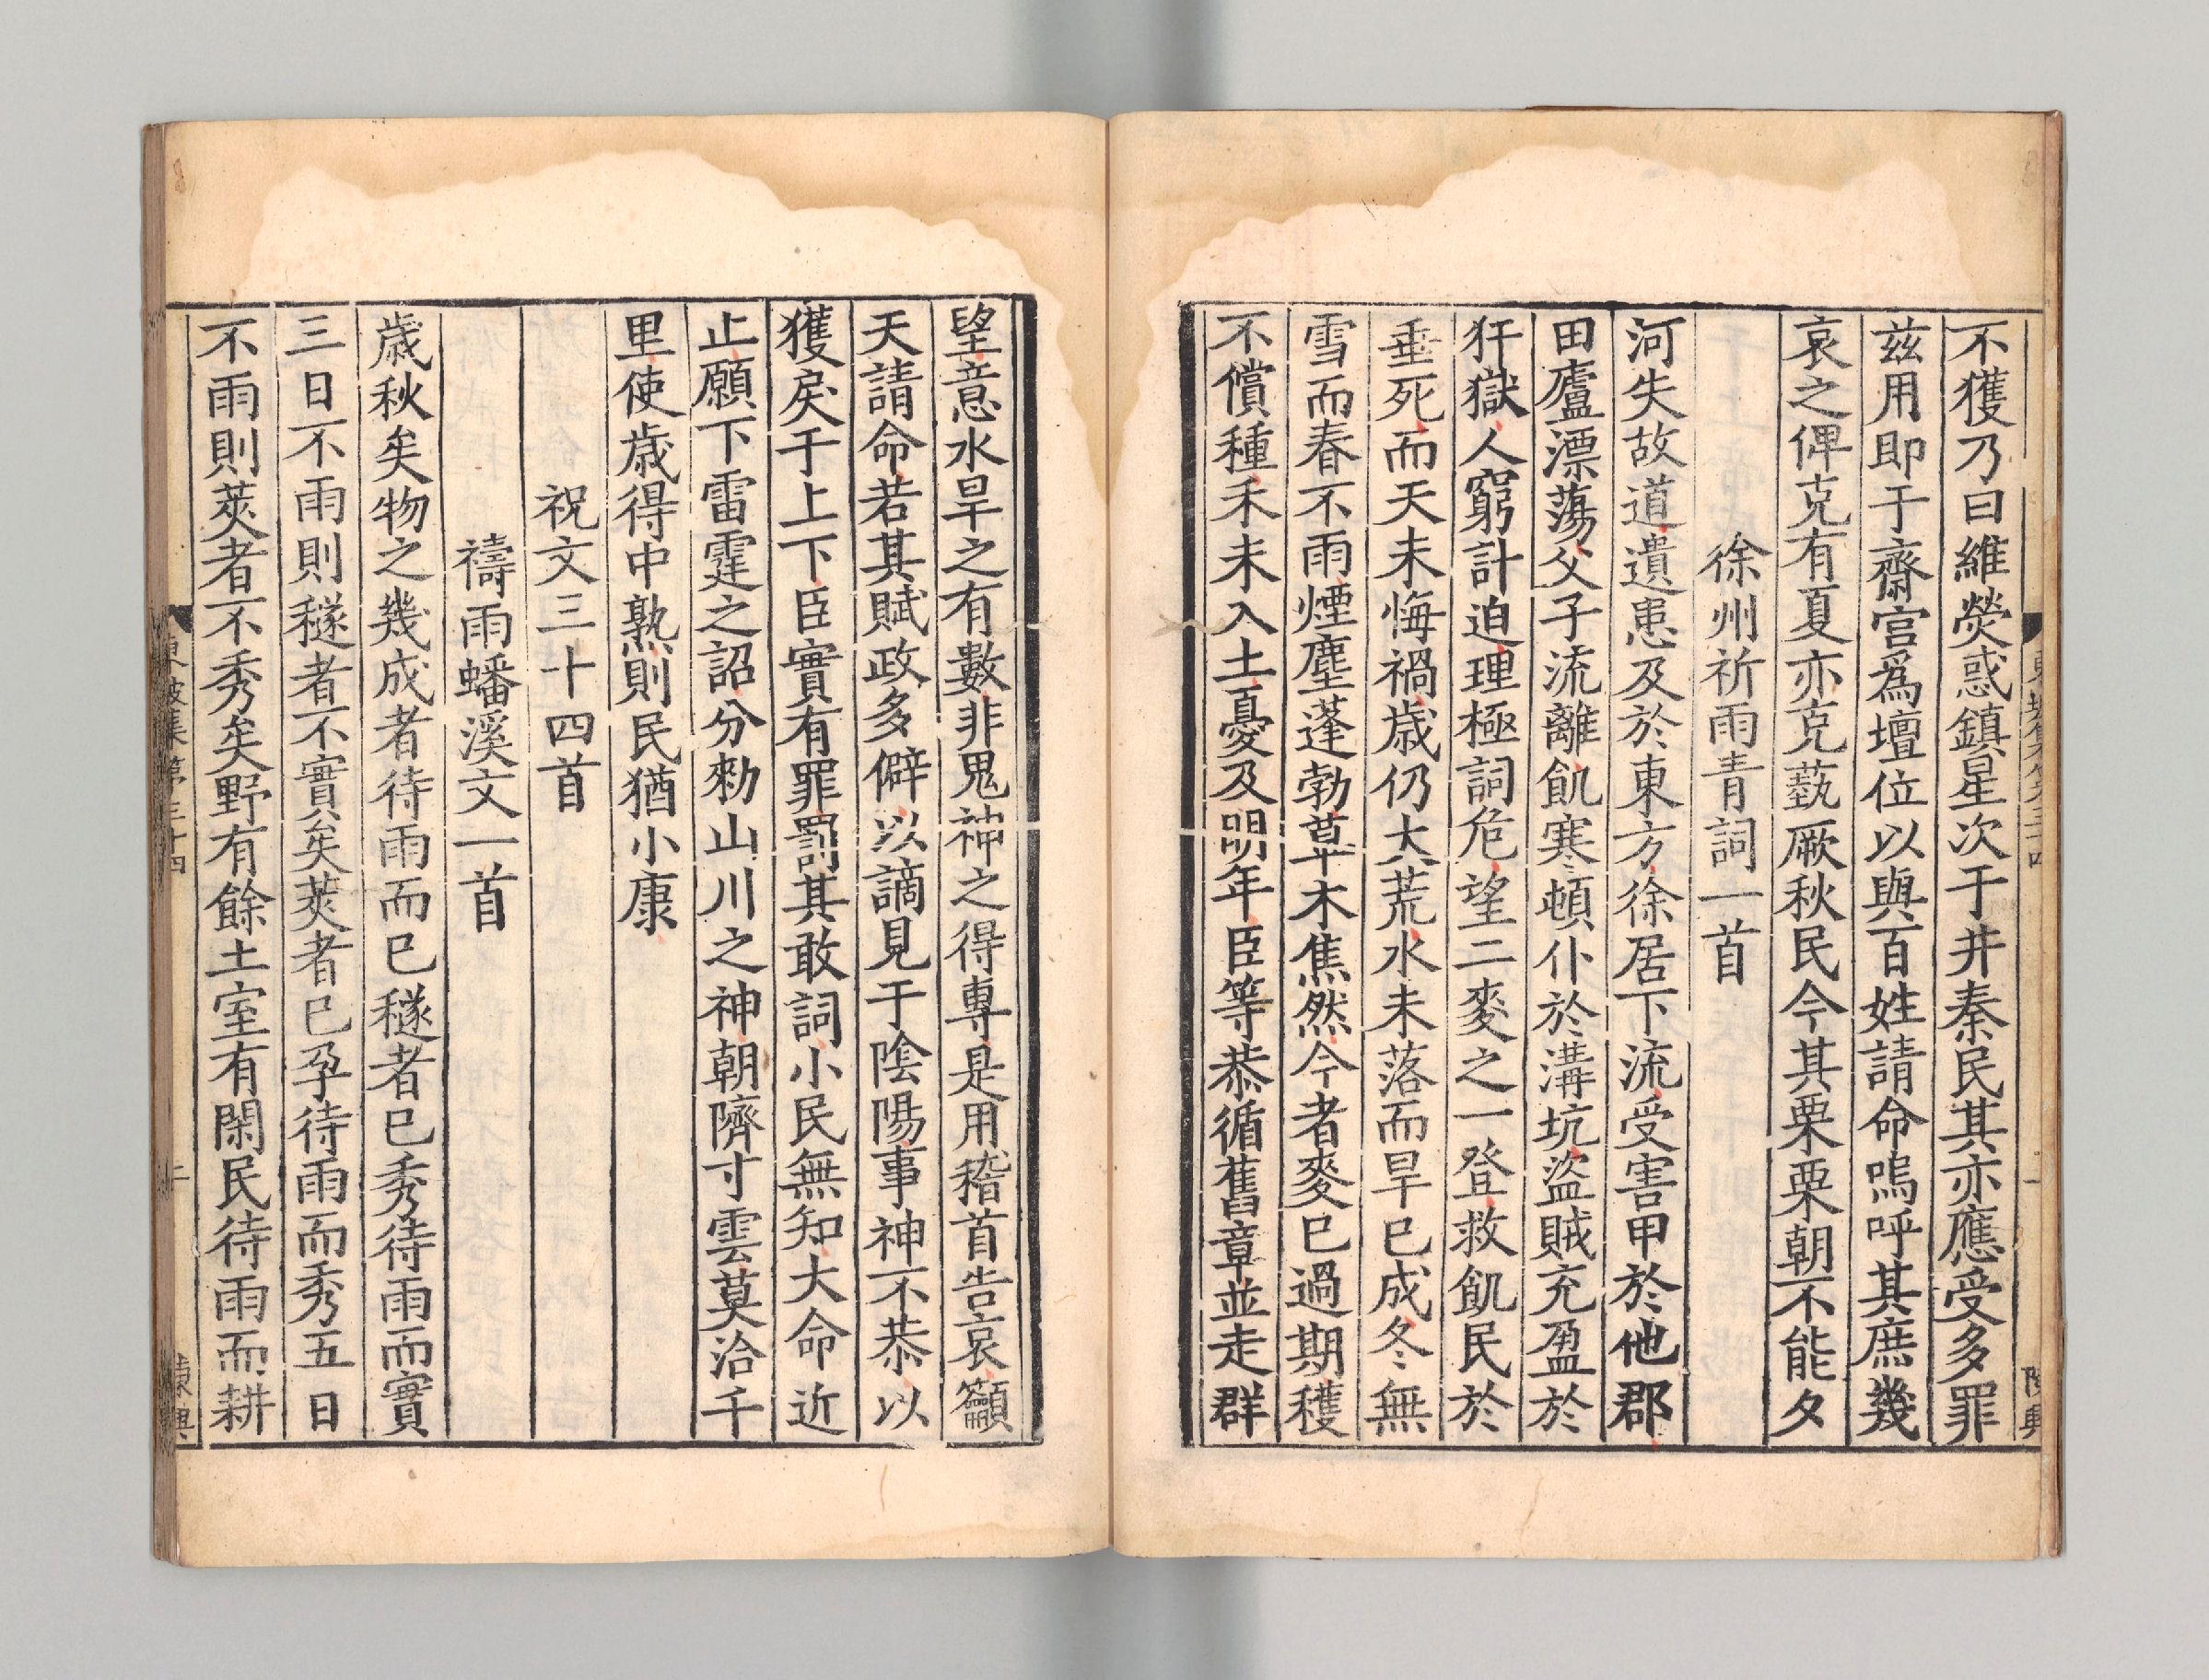 不獲乃曰維熒惑鎮星次于井秦民其亦應受多罪
茲用即于齋宮爲壇位以與百姓請命嗚呼其庶幾
哀之俾克有夏亦克蓺厥秋民今其栗栗朝不能夕
徐州祈雨青詞一首
河失故道遺患及於東方徐居下流受害甲於他郡
田廬漂蕩父子流離飢寒頓仆於溝坑盜賊充盈於
犴獄人窮計迫理極詞危望二麥之一登救飢民於
垂死而天未悔禍歲仍大荒水未落而旱已成冬無
雪而春不雨煙塵蓬勃草木焦然今者麥已過期穫
不償種禾未入土憂及明年臣等恭循舊章並走群
望意水旱之有數非鬼神之得專是用稽首告哀籲
天請命若其賦政多僻以謫見于陰陽事神不恭以
獲戾于上下臣實有罪罰其敢詞小民無知大命近
止願下雷霆之詔分勑山川之神朝隮寸雲莫洽千
里使歲得中熟則民猶小康
祝文三十四首
禱雨蟠溪文一首
歲秋矣物之幾成者待雨而已穟者已秀待雨而實
三日不雨則穟者不實矣莢者已孕待雨而秀五日
不雨則莢者不秀矣野有餘土室有閑民待雨而耕
東坡集第三十四
二
陳興